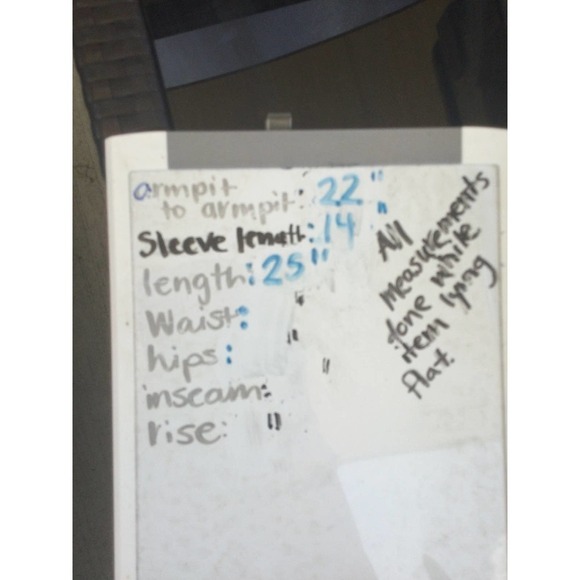 armpit
to armpit: 22"
Sleeve length: 14"
length: 25"
Waist: "
hips: "
inseam: "
rise: "
All
measurements
done while
item lying
flat.